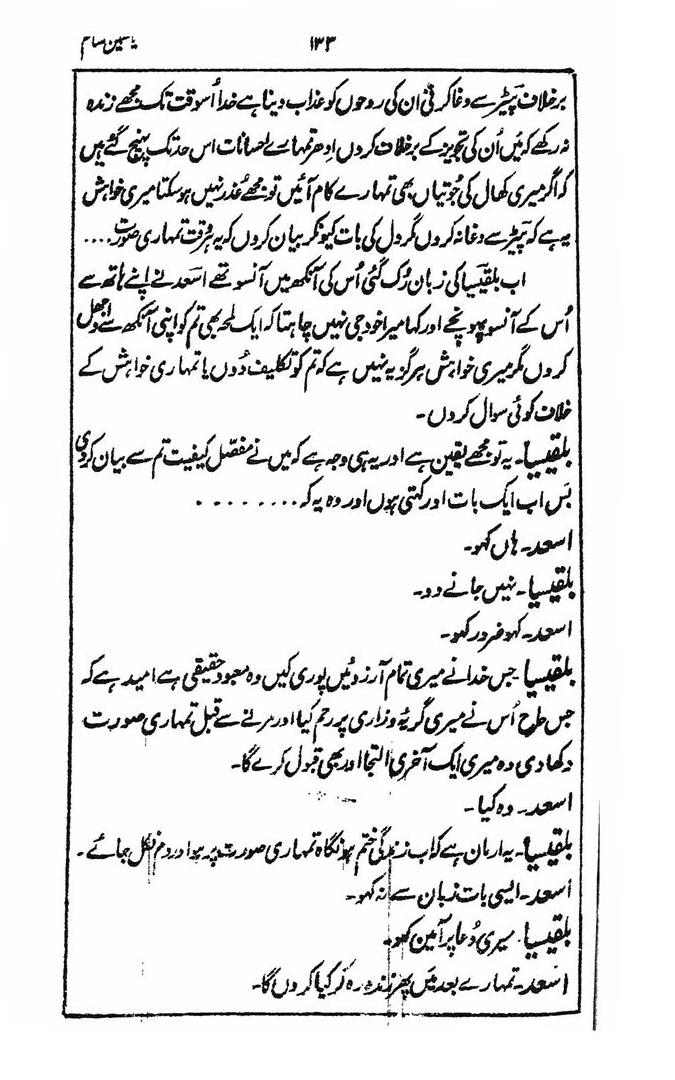 یاسمین شام ۱۳۳
برخلاف پیٹر سے دغا کرنی ان کی روحوں کو عذاب دینا ہے خدا اُسوقت تک مجھے زندہ
نہ رکھے کہ میں اُن کی تجویز کے برخلاف کردں اِدھر تمہارے احسانات اس حد تک پہنچ گئے ہیں
کہ اگر میری کھال کی جُوتیاں بھی تمہارے کام آئیں تو مجھے عُذر نہیں ہو سکتا میری خواہش
یہ ہے کہ پیٹر سے دغا نہ کروں مگر دل کی بات کیونکر بیان کروں کہ یہ ہر وقت تمہاری صورت....
اب بلقیسیا کی زبان رُک گئی اُس کی آنکھ میں آنسو تھے اسعد نے اپنے ہاتھ سے
اُس کے آنسو پونچھے اور کہا میرا خود جی نہیں چاہتا کہ ایک لمحہ بھی تم کو اپنی آنکھ سے اوجھل
کروں مگر میری خواہش ہرگز یہ نہیں ہے کہ تم کو تکلیف دُوں یا تمہاری خواہش کے
خلاف کوئی سوال کروں۔
بلقیسیا۔ یہ تو مجھے یقین ہے اور یہ ہی وجہ ہے کہ میں نے مفصّل کیفیت تم سے بیان کردی
بَس اب ایک بات اور کہتی ہوں اور وہ یہ کہ.........
اسعد۔ ہاں کہو۔
بلقیسیا۔ نہیں جانے دو۔
اسعد۔ کہو ضرور کہو۔
بلقیسیا۔ جس خدا نے میری تمام آرزوئیں پوری کیں وہ معبود حقیقی ہے امید ہے کہ
جس طرح اُس نے میری گریۂ وزاری پر رحم کیا اور مرنے سے قبل تمہاری صورت
دکھا دی وہ میری ایک آخری التجا اور بھی قبول کرے گا۔
اسعد۔ وہ کیا۔
بلقیسیا۔ یہ ارمان ہے کہ اب زندگی ختم ہو نگاہ تمہاری صورت پر ہو اور دم نکل جائے۔
اسعد۔ ایسی بات زبان سے نہ کہو۔
بلقیسیا۔ میری دُعا پر آمین کہو۔
اسعد۔ تمہارے بعد میں پھر زندہ رہ کر کیا کروں گا۔